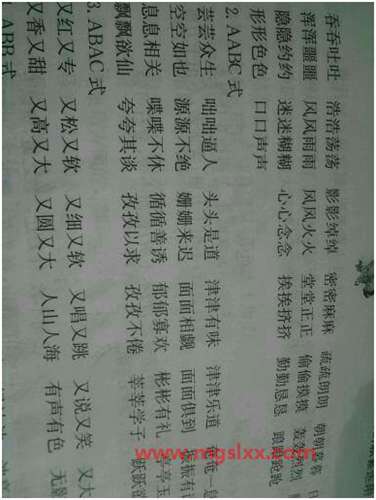 吞吞吐吐 浩浩荡荡 影影绰绰 密密麻麻 疏疏朗朗 朝朝暮暮
浑浑噩噩 风风雨雨 风风火火 堂堂正正 偷偷摸摸 轰轰烈烈
隐隐约约 迷迷糊糊 心心念念 挨挨挤挤 勤勤恳恳 踉踉跄跄
形形色色 口口声声
2. AABC 式
芸芸众生 咄咄逼人 头头是道 津津有味 津津乐道
空空如也 源源不绝 姗姗来迟 面面相觑 面面俱到 振有
息息相关 喋喋不休 循循善诱 郁郁寡欢 彬彬有礼 亭亭玉
飘飘欲仙 夸夸其谈 孜孜以求 孜孜不倦 莘莘学子 跃跃欲
3. ABAC 式
又红又专 又松又软 又细又软 又唱又跳 又说又笑 又大
又香又甜 又高又大 又圆又大 人山人海 有声有色 无
ABB 式
www.mgslxx.com